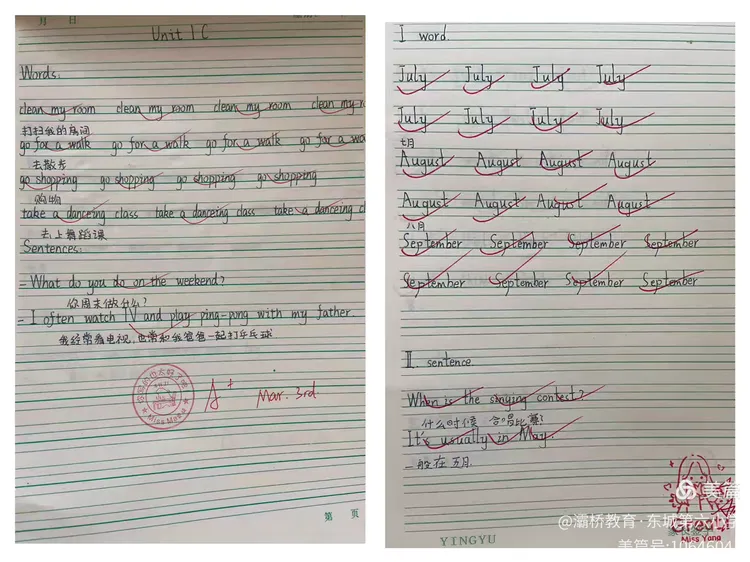 月 日
Unit 1 C
Words:
clean my room clean my room clean my room clean my r
打扫我的房间
go for a walk go for a walk go for a walk go for a wa
去散步
go shopping go shopping go shopping go shopping
购物
take a danceing class take a danceing class take a danceing cl
去上舞蹈课
Sentences:
- What do you do on the weekend?
你周末做什么?
- I often watch TV and play ping-pong with my father.
我经常看电视,也常和我爸爸一起打乒乓球
A+ Mar. 3rd
第 页
I word.
July July July July
July July July July
七月
August August August August
August August August August
八月
September September September September
September September September September
II. sentence.
When is the singing contest?
什么时候 合唱比赛?
It's usually in May.
一般在五月.
Miss Yang
YINGYU
@灞桥教育·东城第六小
美篇号:1064604